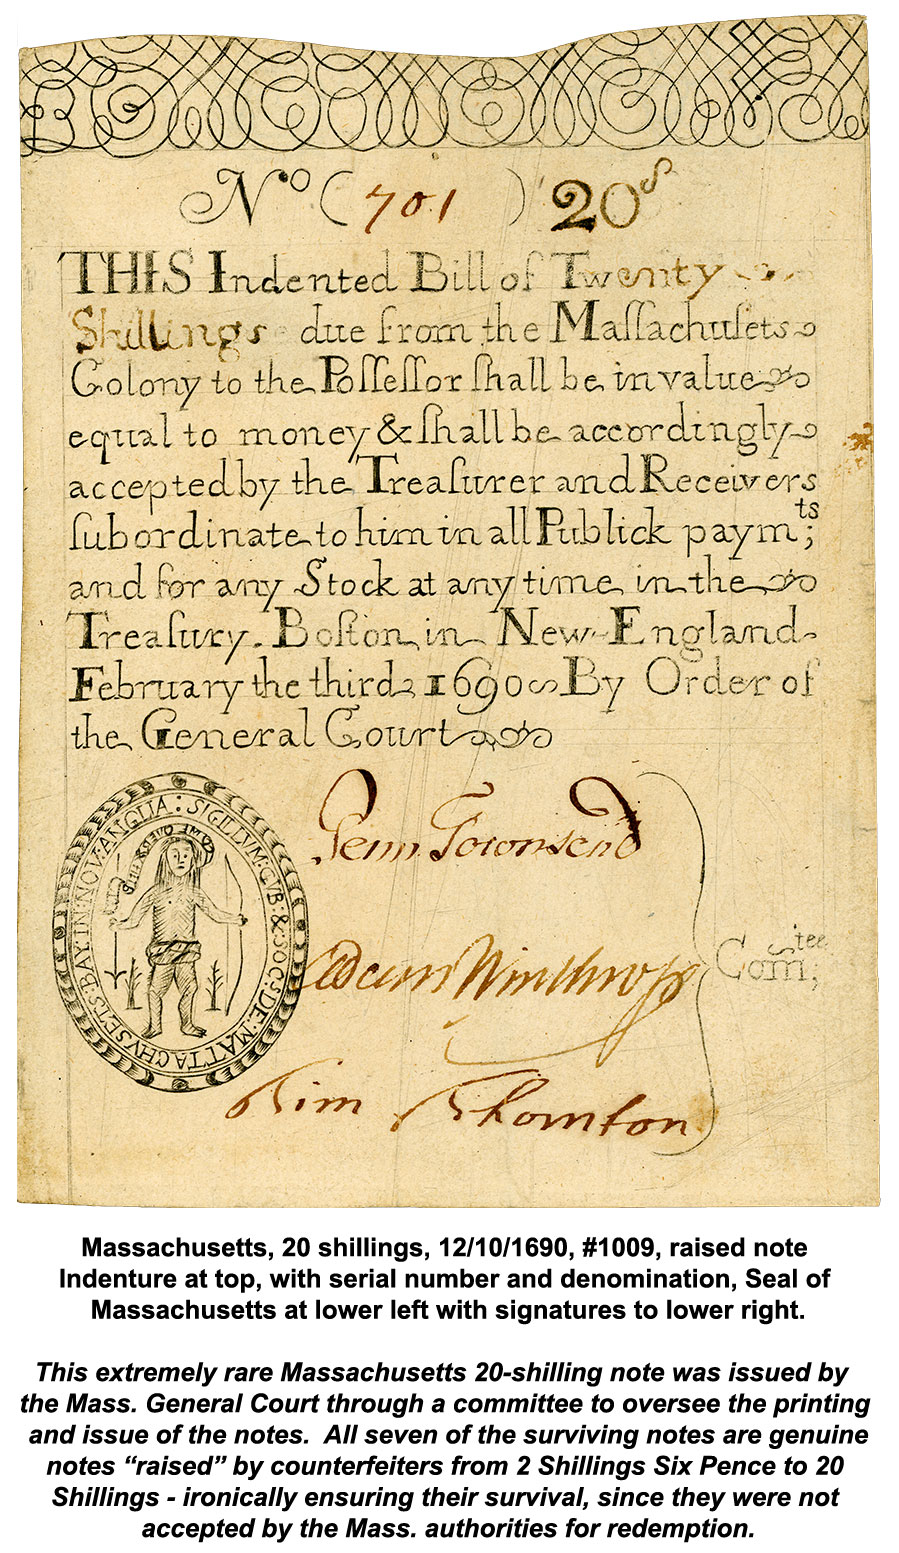 Nº (701) 20ˢ
THIS Indented Bill of Twenty
Shillings due from the Maſſachuſets
Colony to the Poſſeſſor ſhall be in value
equal to money & ſhall be accordingly
accepted by the Treaſurer and Receivers
ſubordinate to him in all Publick paymᵗˢ;
and for any Stock at any time in the
Treaſury. Boſton in New-England
February the third 1690 By Order of
the General Court
SIGILLVM: GVB: & SOC: DE: MATTACHVSETS: BAY: IN: NOV: ANGLIA:
Penn Townsend
Adam Winthrop
Comᵗᵉᵉ;
Tim Thornton
Massachusetts, 20 shillings, 12/10/1690, #1009, raised note
Indenture at top, with serial number and denomination, Seal of
Massachusetts at lower left with signatures to lower right.
This extremely rare Massachusetts 20-shilling note was issued by
the Mass. General Court through a committee to oversee the printing
and issue of the notes.  All seven of the surviving notes are genuine
notes “raised” by counterfeiters from 2 Shillings Six Pence to 20
Shillings - ironically ensuring their survival, since they were not
accepted by the Mass. authorities for redemption.